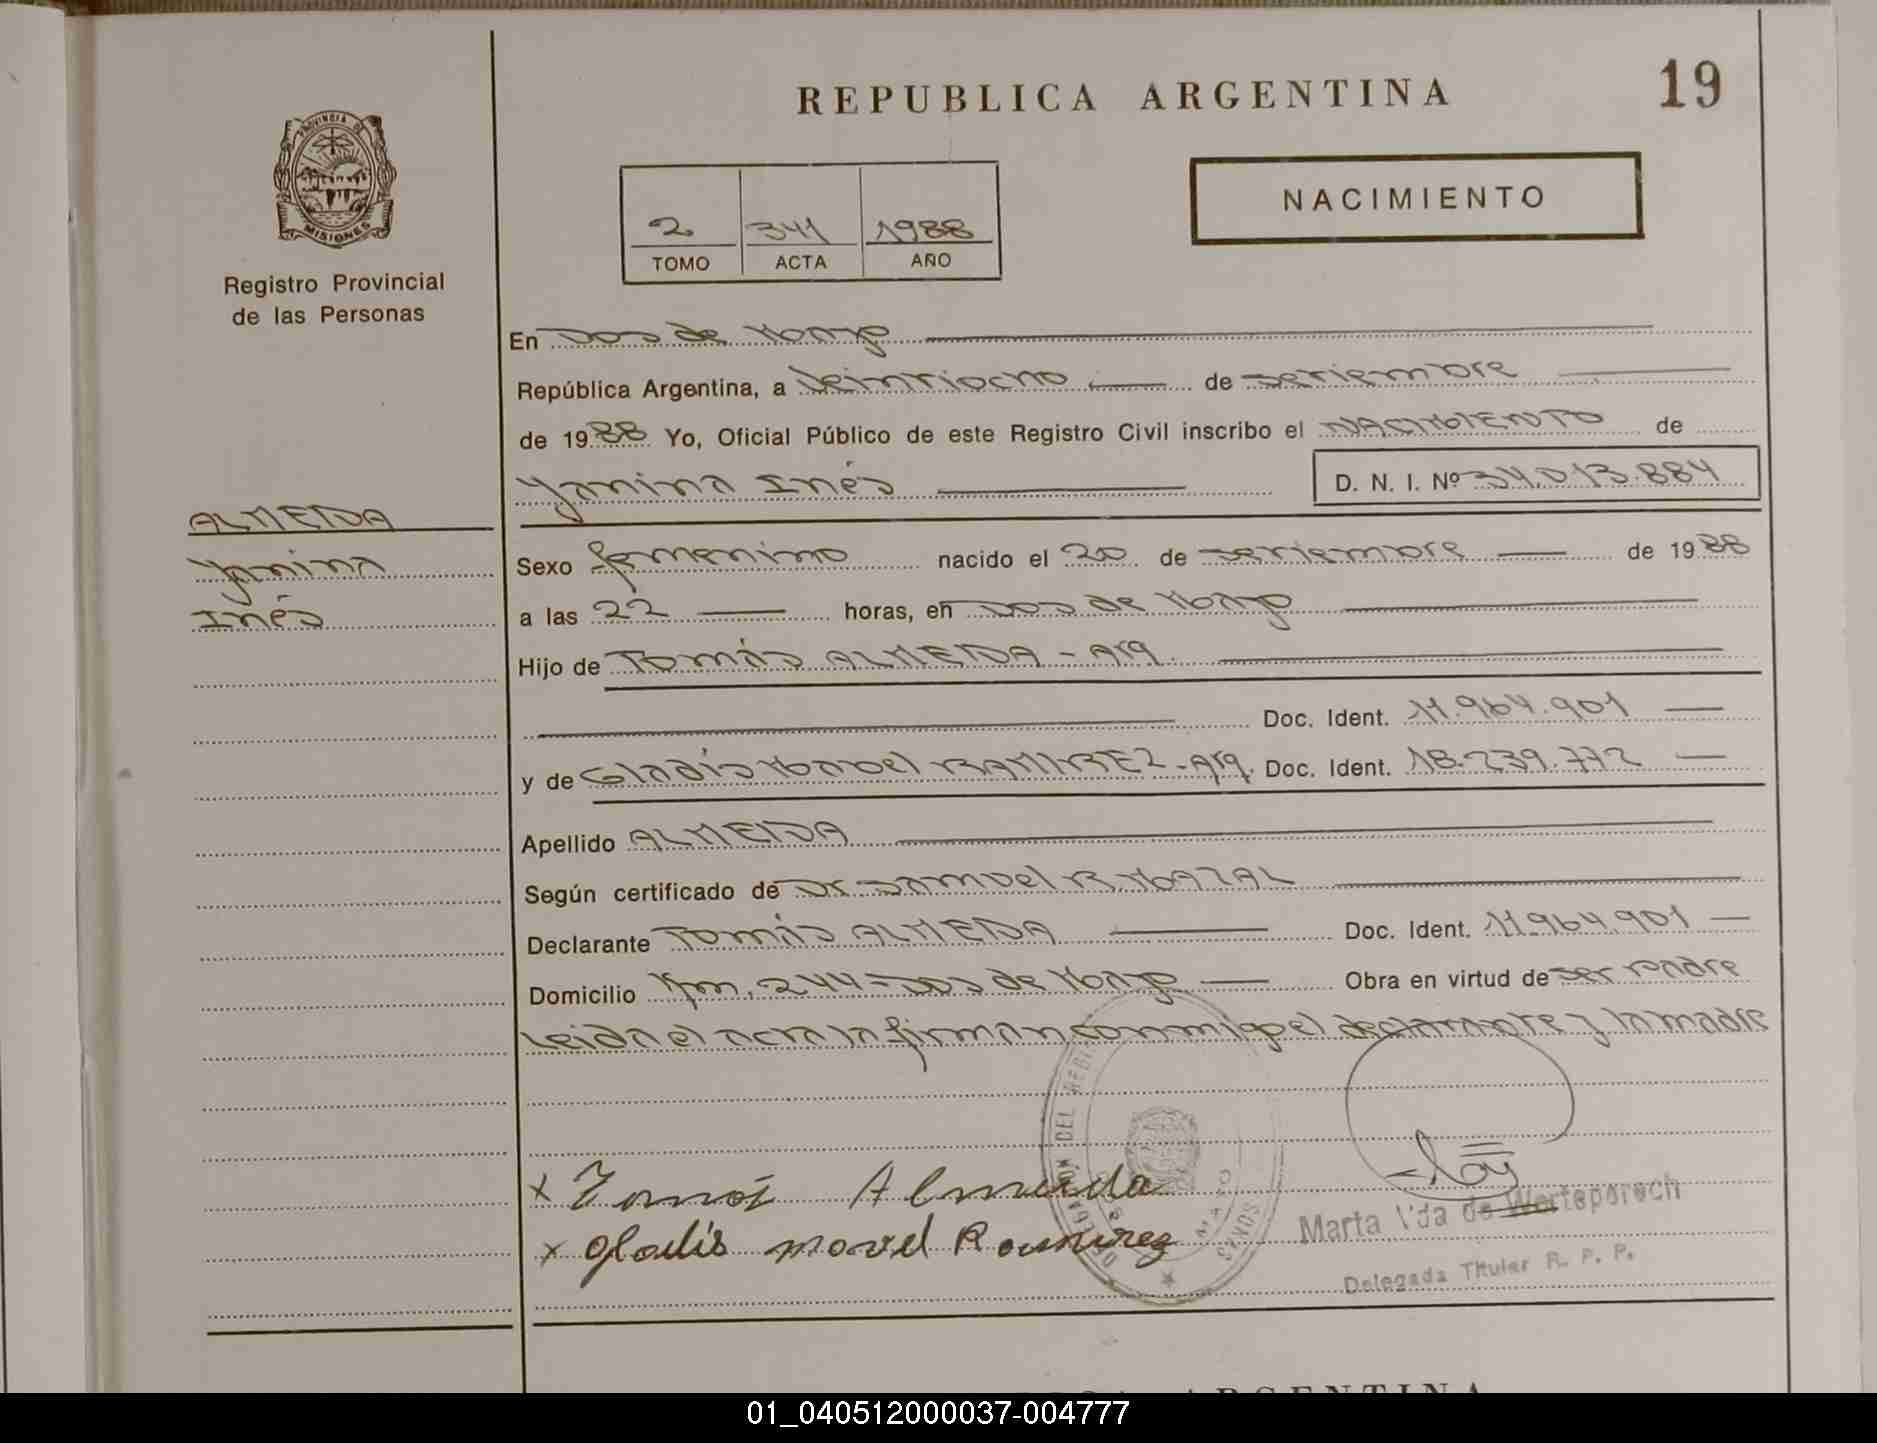 REPUBLICA ARGENTINA
19
PROVINCIA DE
MISIONES
Registro Provincial
de las Personas
2 341 1988
TOMO ACTA AÑO
NACIMIENTO
En Dos de Mayo
República Argentina, a Veintiocho de Setiembre
de 1988 Yo, Oficial Público de este Registro Civil inscribo el NACIMIENTO de
Yanina Inés D. N. I. Nº 34.013.884
ALMEIDA
Yanina
Inés
Sexo femenino nacido el 20 de Setiembre de 1988
a las 22 horas, en Dos de Mayo
Hijo de Tomás ALMEIDA - Arg
Doc. Ident. 11.964.901
y de Gladis Mabel RAMIREZ - Arg. Doc. Ident. 18.239.772
Apellido ALMEIDA
Según certificado de Dr Samuel
Declarante Tomás ALMEIDA Doc. Ident. 11.964.901
Domicilio Km. 244 - Dos de Mayo Obra en virtud de ser padre
Leida el acta la firman conmigo el declarante y la madre
x Tomás Almeida
x Gladis Mavel Ramirez
Marta Vda de Werteparech
Delegada Titular R. P. P.
ARGENTINA
01_040512000037-004777